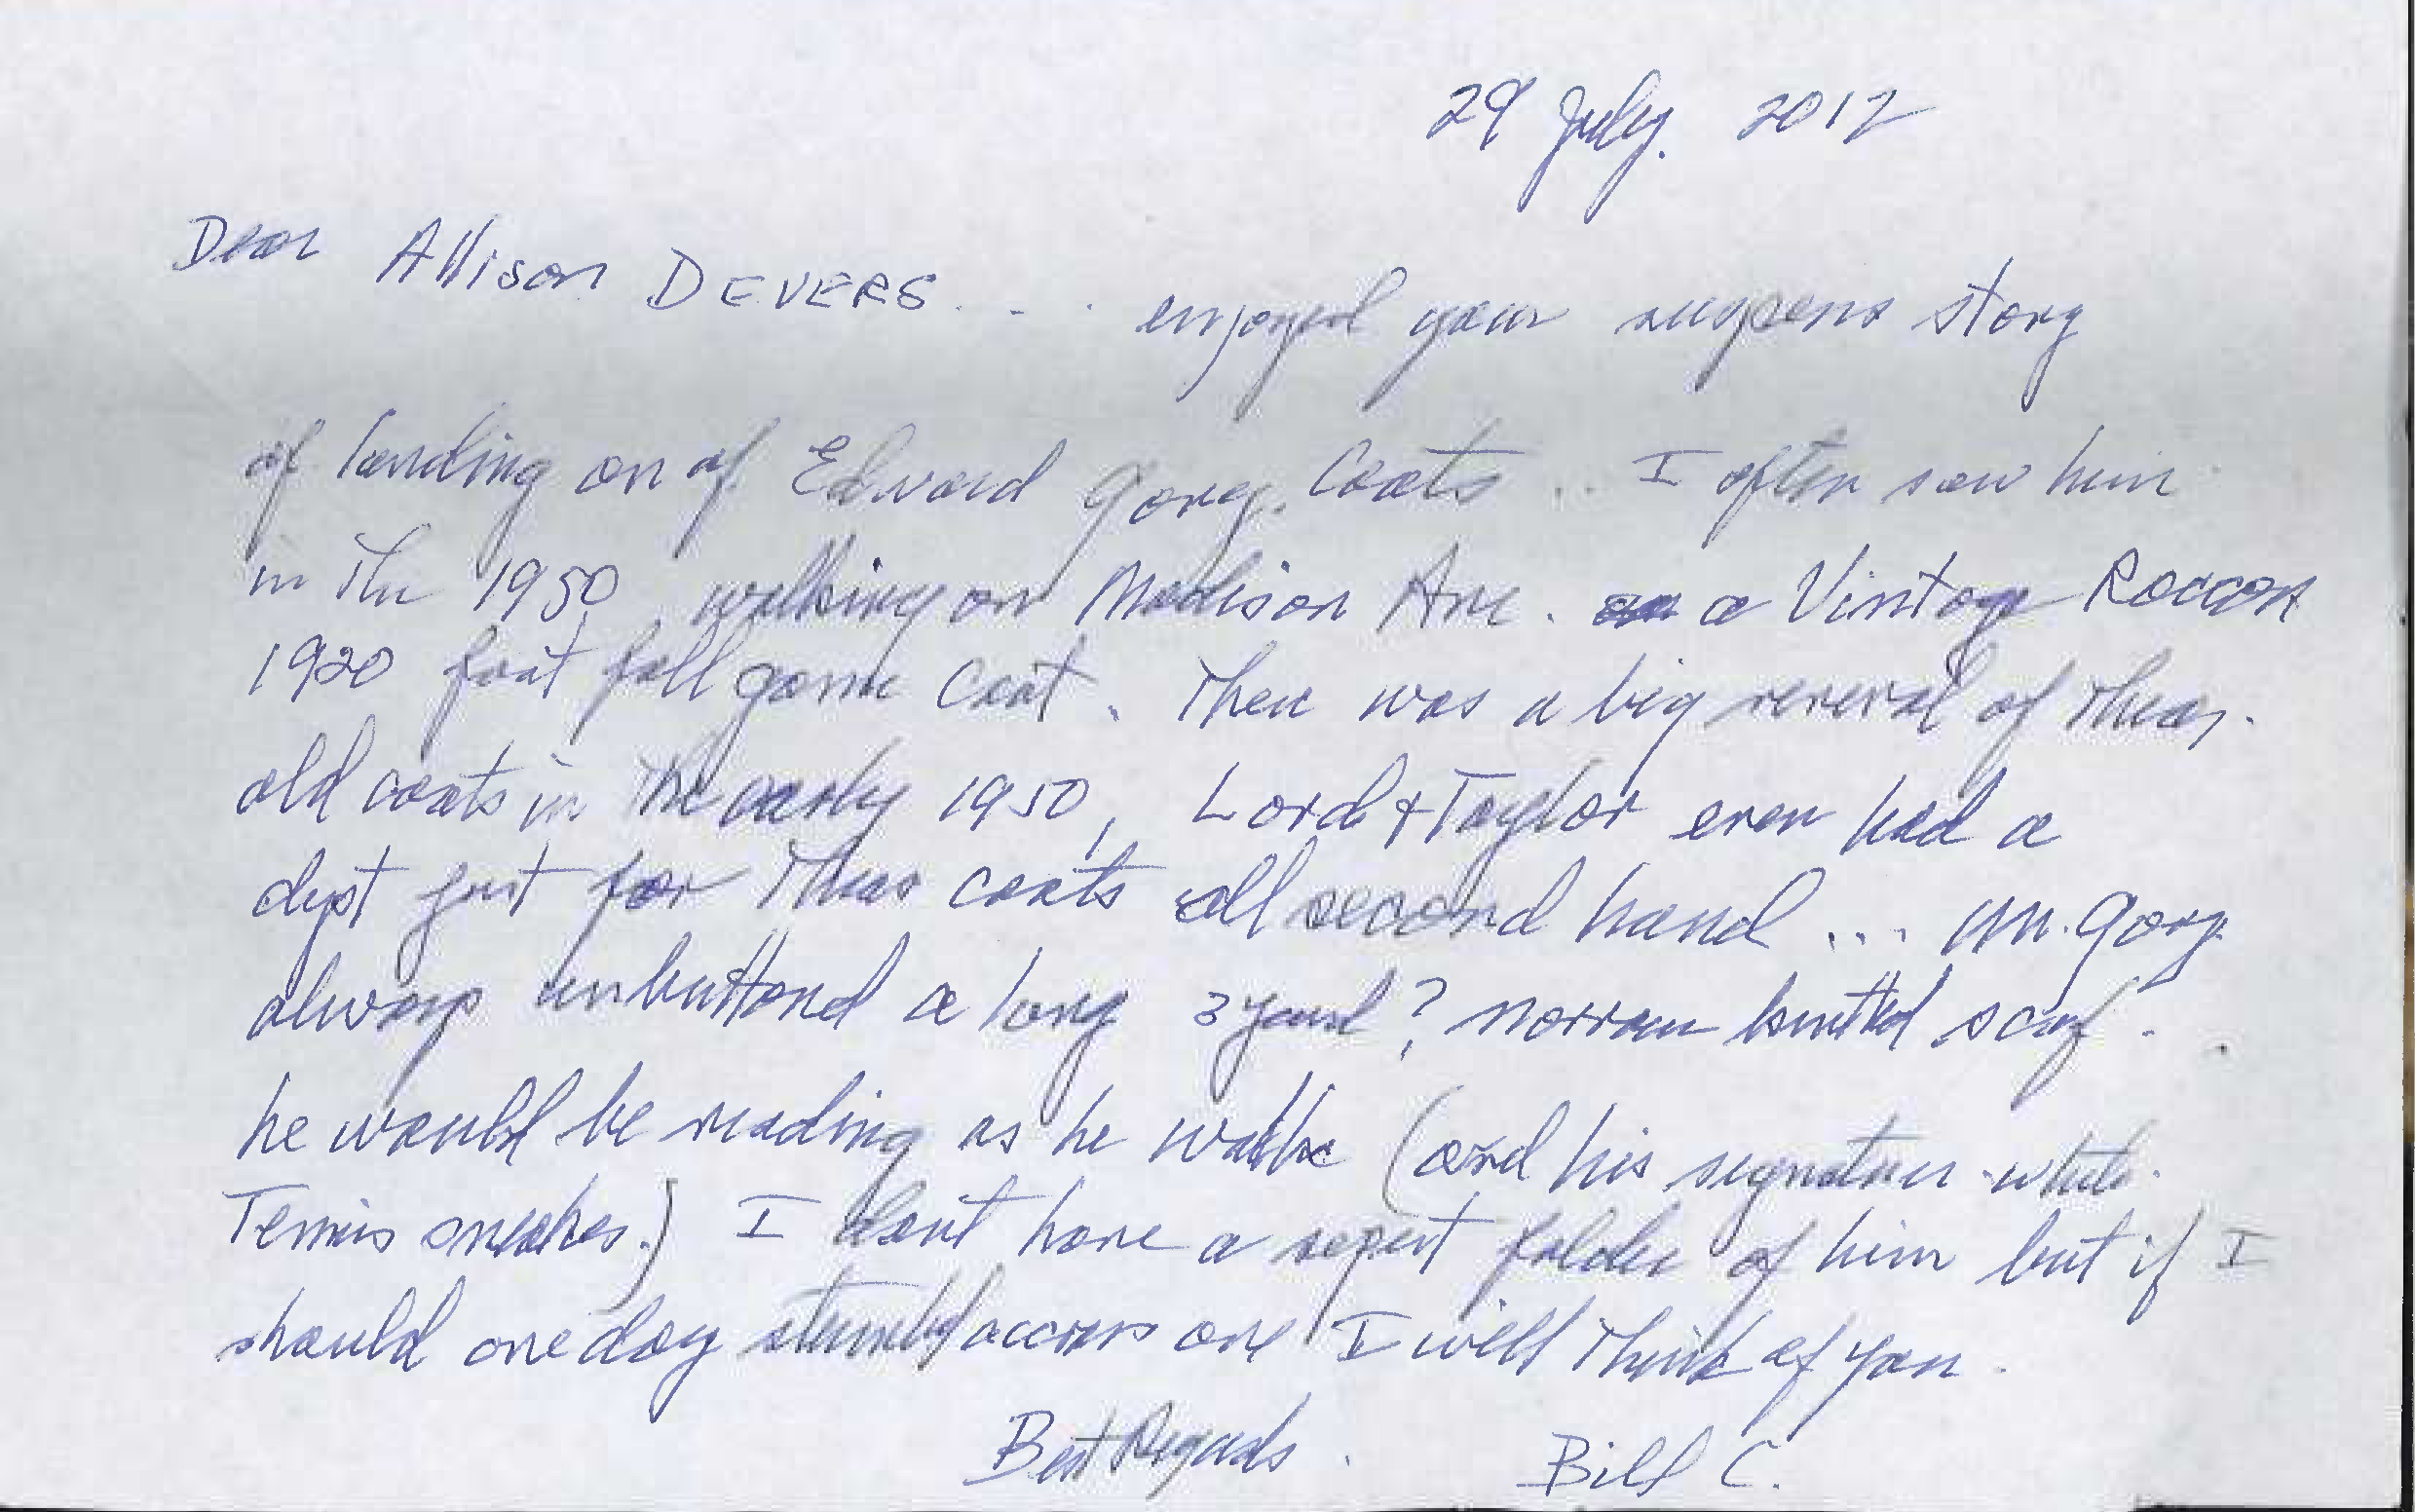 29 July. 2012
Dear Allison DEVERS... enjoyed your suspens story
of landing on of Edward Gorey. Coats .. I often saw him
in the 1950, walking on Madison Ave. a Vintage Raccon
1920 foot fall game Coat. Then was a big reveral of thes.
old coats in the early 1950, Lord + Taylor even had a
dept just for Thes coats all second hand ... Mr. Gorey
always unbuttond a long 3 yard? narrow knitted scarf.
he would be reading as he walke (and his signature white
Tennis sneakes.) I dont have a repert folder of him but if I
should one day stumbled accross one I will Think of you.
Best Regards. Bill C.